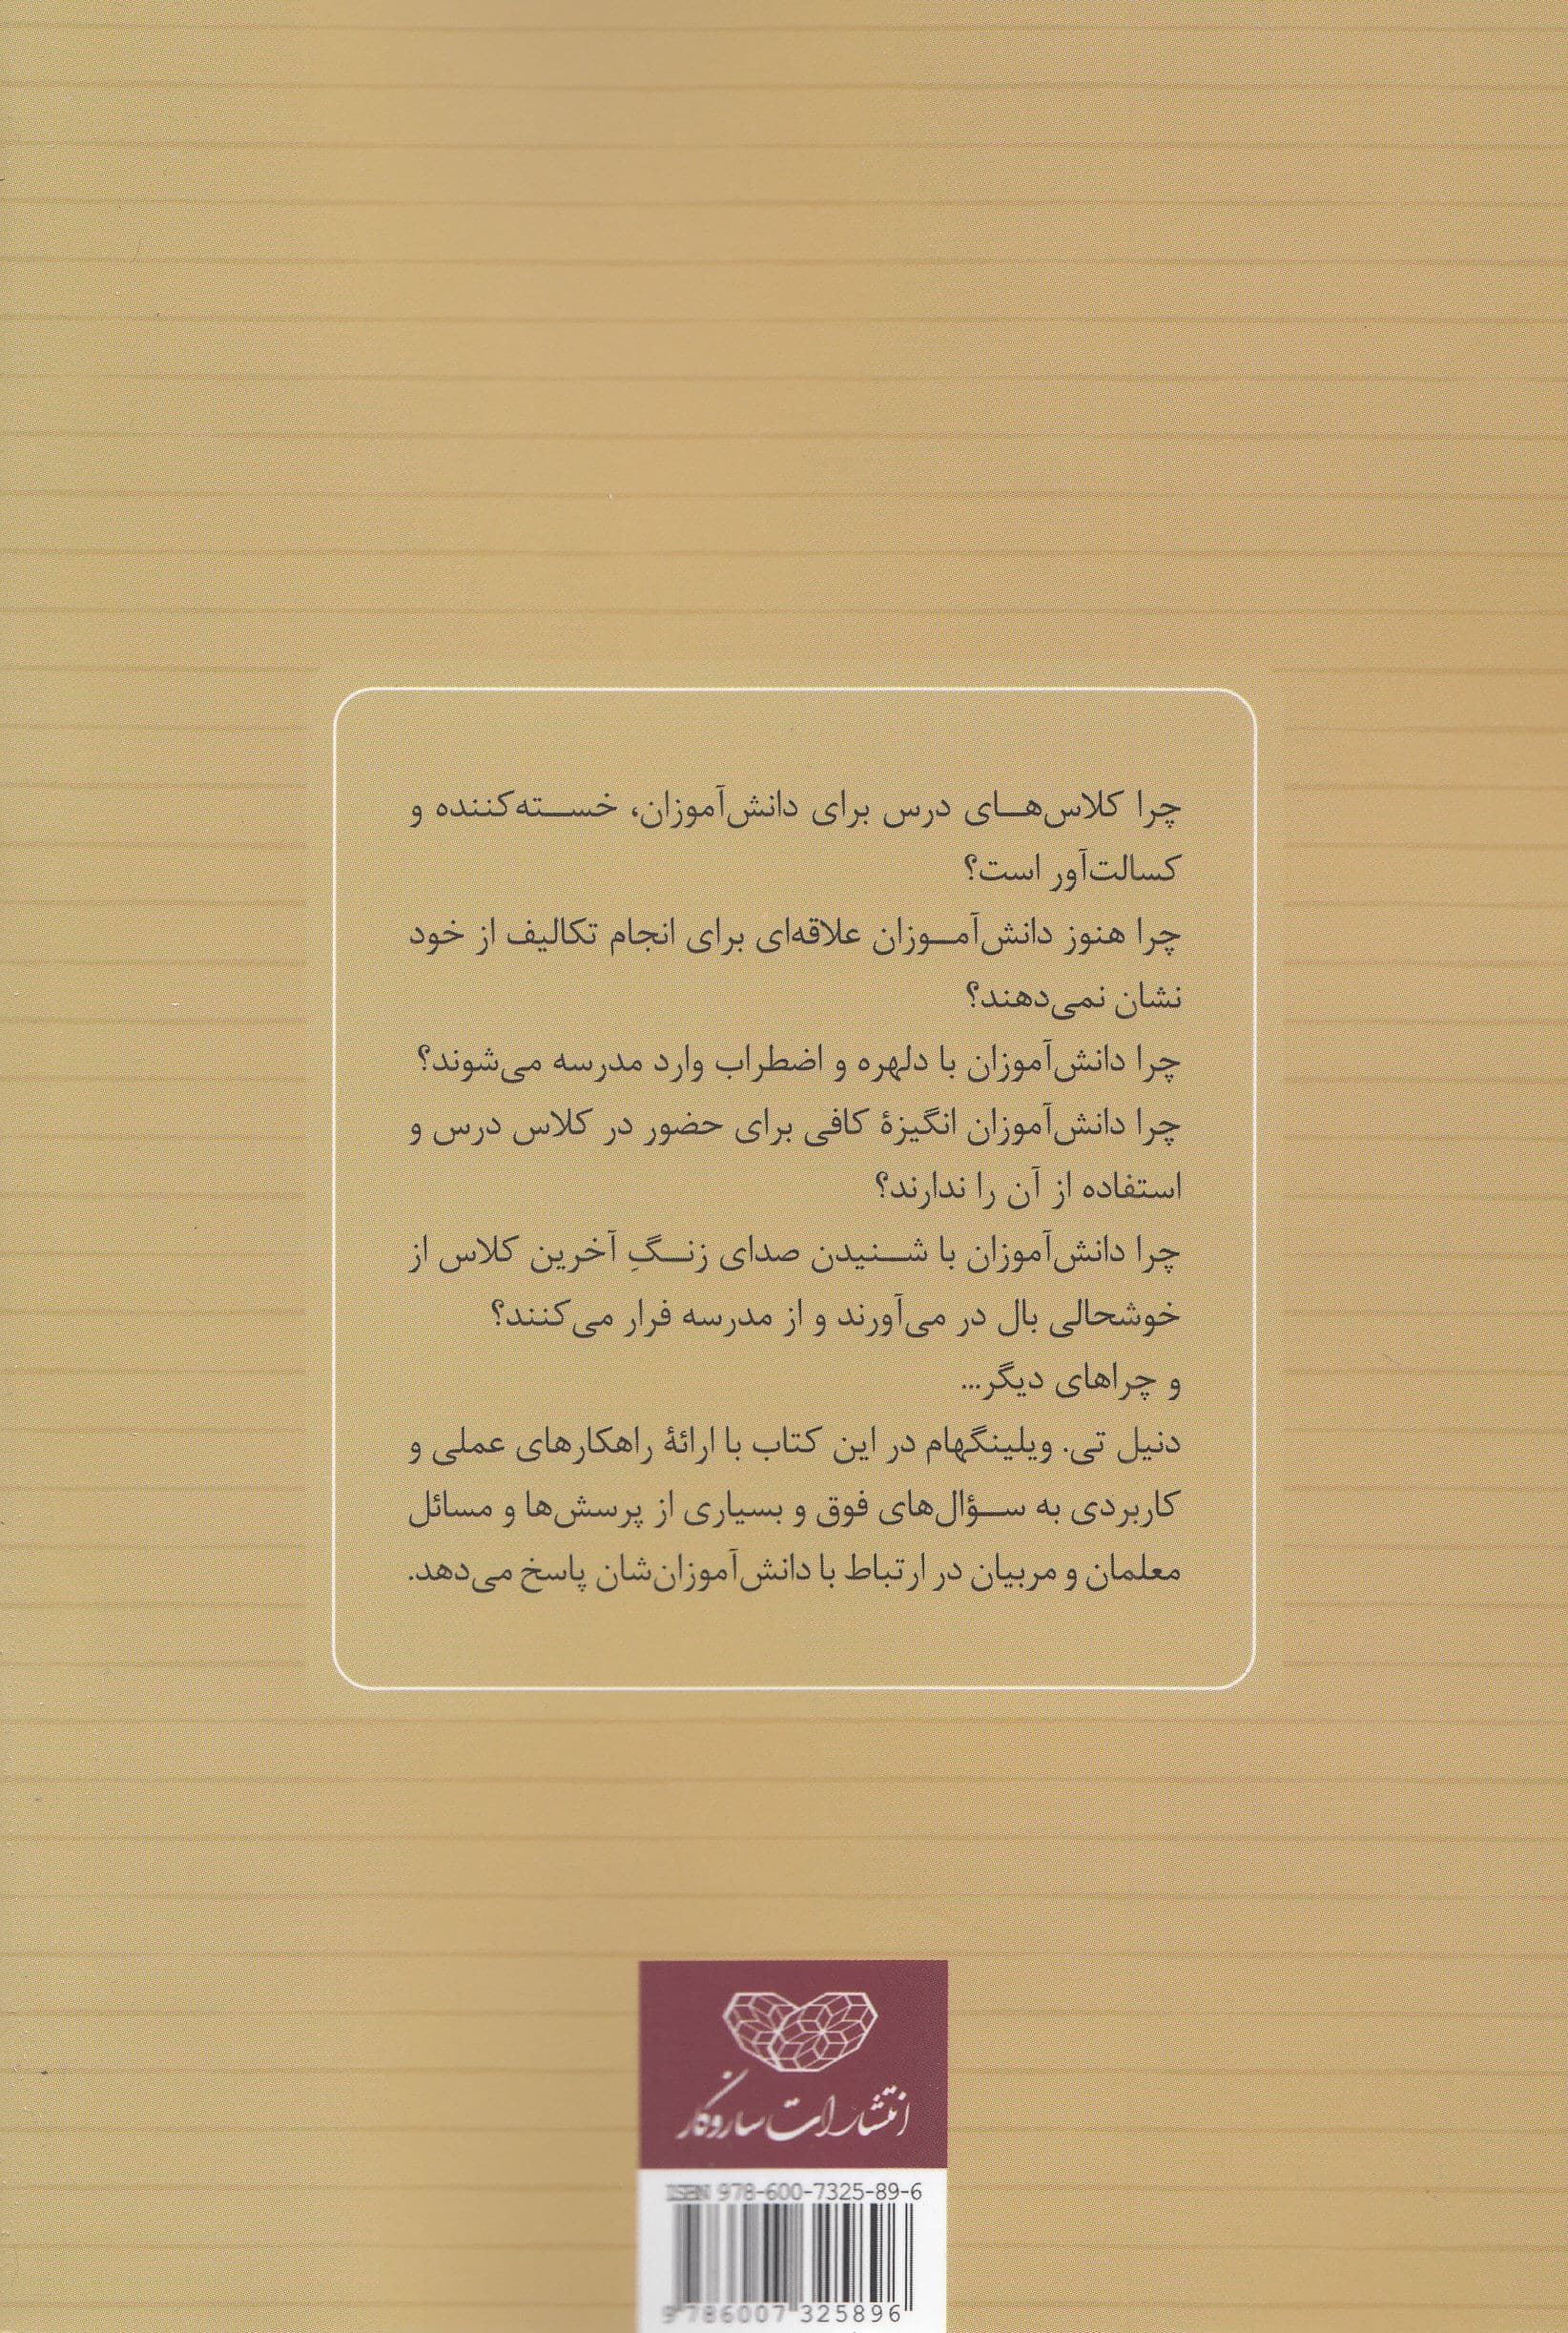 چرا کلاس‌های درس برای دانش‌آموزان، خسته‌کننده و
کسالت‌آور است؟
چرا هنوز دانش‌آموزان علاقه‌ای برای انجام تکالیف از خود
نشان نمی‌دهند؟
چرا دانش‌آموزان با دلهره و اضطراب وارد مدرسه می‌شوند؟
چرا دانش‌آموزان انگیزهٔ کافی برای حضور در کلاس درس و
استفاده از آن را ندارند؟
چرا دانش‌آموزان با شنیدن صدای زنگِ آخرین کلاس از
خوشحالی بال در می‌آورند و از مدرسه فرار می‌کنند؟
و چراهای دیگر...
دنیل تی. ویلینگهام در این کتاب با ارائهٔ راهکارهای عملی و
کاربردی به سؤال‌های فوق و بسیاری از پرسش‌ها و مسائل
معلمان و مربیان در ارتباط با دانش‌آموزان‌شان پاسخ می‌دهد.
انتشارات سازوکار
ISBN 978-600-7325-89-6
9 786007 325896